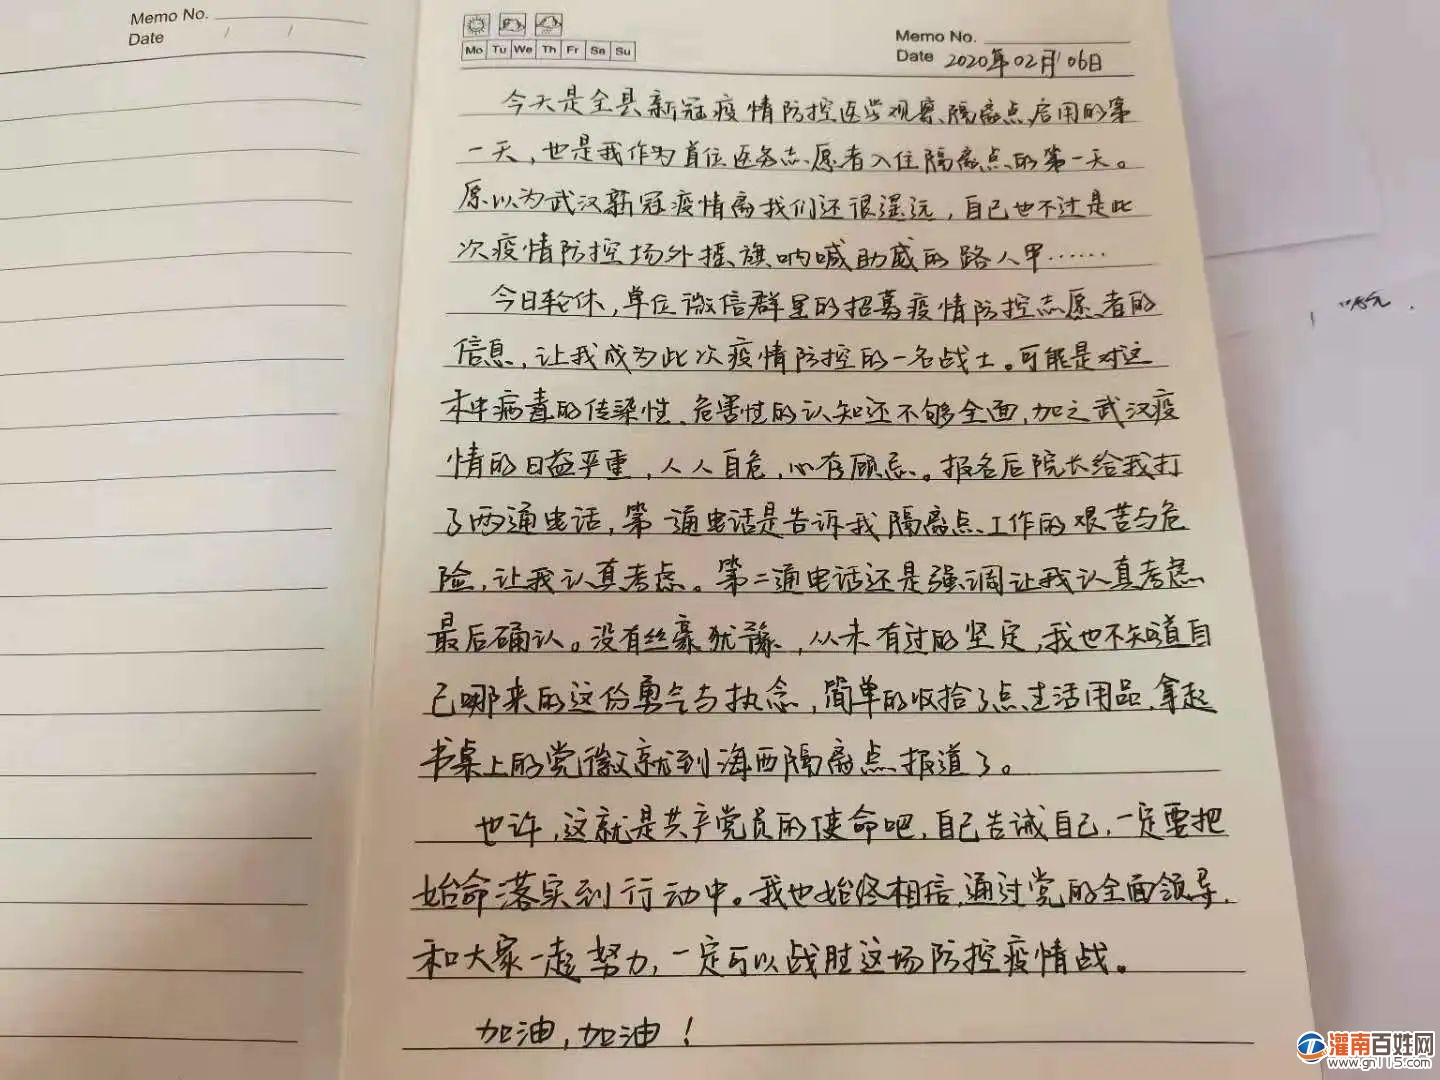 Memo No.
Date / /
Mo Tu We Th Fr Sa Su
Memo No.
Date 2020年02月06日
今天是全县新冠疫情防控医学观察隔离点启用的第
一天，也是我作为首位医务志愿者入住隔离点的第一天。
原以为武汉新冠疫情离我们还很遥远，自己也不过是此
次疫情防控场外摇旗呐喊助威的路人甲……
今日轮休，单位微信群里的招募疫情防控志愿者的
信息，让我成为此次疫情防控的一名战士。可能是对这
种病毒的传染性、危害性的认知还不够全面，加之武汉疫
情的日益严重，人人自危，心存顾忌。报名后院长给我打
了两通电话，第一通电话是告诉我隔离点工作的艰苦与危
险，让我认真考虑。第二通电话还是强调让我认真考虑
最后确认。没有丝豪犹豫，从未有过的坚定，我也不知道自
己哪来的这份勇气与执念，简单的收拾了点生活用品，拿起
书桌上的党徽就到海西隔离点报道了。
也许，这就是共产党员的使命吧，自己告诫自己，一定要把
始命落实到行动中。我也始终相信，通过党的全面领导，
和大家一起努力，一定可以战胜这场防控疫情战。
加油，加油！
灌南百姓网
www.gn115.com